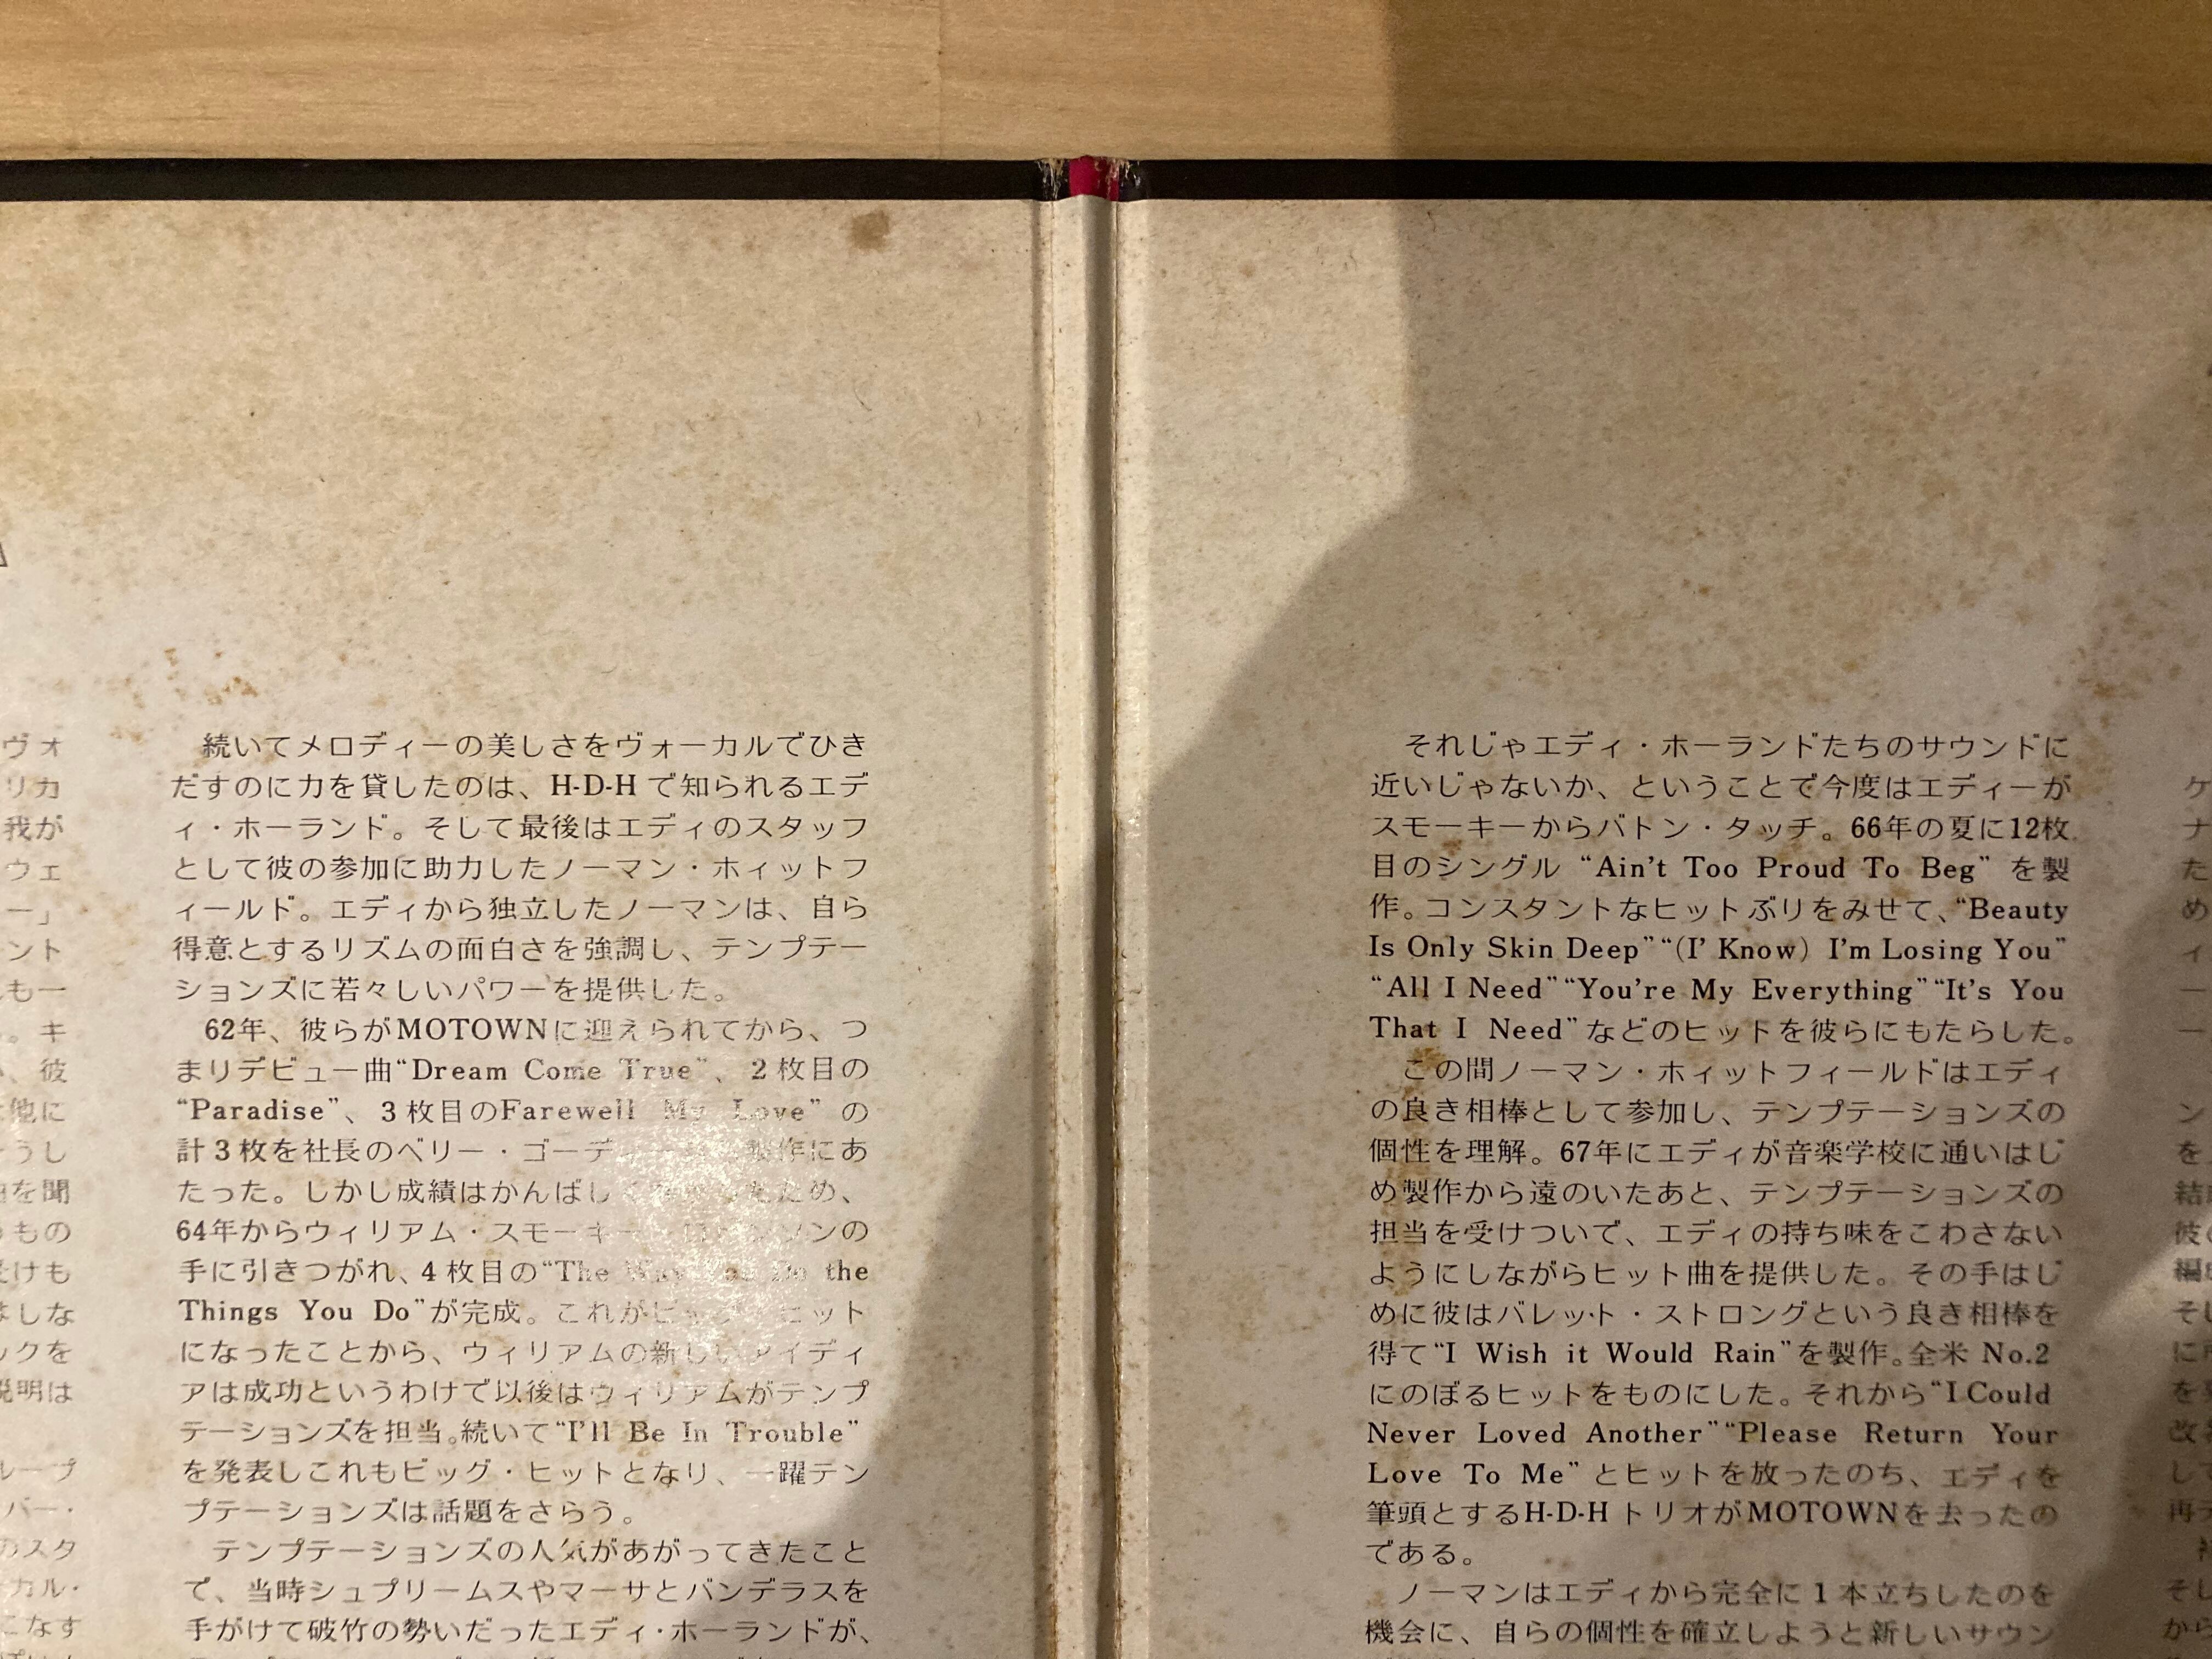 ヴォ
リカ
我が
ウェ
ー」
ント
も一
。キ
、彼
他に
うし
を聞
もの
けも
しな
クを
説明は
ループ
バー・
のスタ
カル・
こなす
続いてメロディーの美しさをヴォーカルでひき
だすのに力を貸したのは、H-D-Hで知られるエデ
ィ・ホーランド。そして最後はエディのスタッフ
として彼の参加に助力したノーマン・ホィットフ
ィールド。エディから独立したノーマンは、自ら
得意とするリズムの面白さを強調し、テンプテー
ションズに若々しいパワーを提供した。
62年、彼らがMOTOWNに迎えられてから、つ
まりデビュー曲“Dream Come True”、2枚目の
“Paradise”、3枚目のFarewell My Love” の
計3枚を社長のベリー・ゴーデ 製作にあ
たった。しかし成績はかんばし ため、
64年からウィリアム・スモーキー・ロビンソンの
手に引きつがれ、4枚目の“The Way You Do the
Things You Do”が完成。これがビッグ・ヒット
になったことから、ウィリアムの新しいアイディ
アは成功というわけで以後はウィリアムがテンプ
テーションズを担当。続いて“I’ll Be In Trouble”
を発表しこれもビッグ・ヒットとなり、一躍テン
プテーションズは話題をさらう。
テンプテーションズの人気があがってきたこと
で、当時シュプリームスやマーサとバンデラスを
手がけて破竹の勢いだったエディ・ホーランドが、
それじゃエディ・ホーランドたちのサウンドに
近いじゃないか、ということで今度はエディーが
スモーキーからバトン・タッチ。66年の夏に12枚
目のシングル “Ain’t Too Proud To Beg” を製
作。コンスタントなヒットぶりをみせて、“Beauty
Is Only Skin Deep”“(I’ Know) I’m Losing You”
“All I Need”“You’re My Everything”“It’s You
That I Need”などのヒットを彼らにもたらした。
この間ノーマン・ホィットフィールドはエディ
の良き相棒として参加し、テンプテーションズの
個性を理解。67年にエディが音楽学校に通いはじ
め製作から遠のいたあと、テンプテーションズの
担当を受けついで、エディの持ち味をこわさない
ようにしながらヒット曲を提供した。その手はじ
めに彼はバレット・ストロングという良き相棒を
得て“I Wish it Would Rain”を製作。全米 No.2
にのぼるヒットをものにした。それから“I Could
Never Loved Another”“Please Return Your
Love To Me”とヒットを放ったのち、エディを
筆頭とするH-D-HトリオがMOTOWNを去ったの
である。
ノーマンはエディから完全に1本立ちしたのを
機会に、自らの個性を確立しようと新しいサウン
ケ
ナ
た
め
ィ
ー
ー
ン
を
結
彼
編
そし
に
を
改
して
再
そし
から